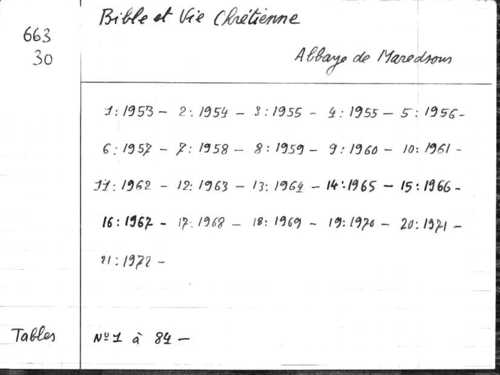 663
30
Bible et Vie Chrétienne
Abbaye de Maredsous
1: 1953 - 2: 1954 - 3: 1955 - 4: 1955 - 5: 1956 -
6: 1957 - 7: 1958 - 8: 1959 - 9: 1960 - 10: 1961 -
11: 1962 - 12: 1963 - 13: 1964 - 14: 1965 - 15: 1966 -
16: 1967 - 17: 1968 - 18: 1969 - 19: 1970 - 20: 1971 -
21: 1972 -
Tables
Nº 1 à 84 -